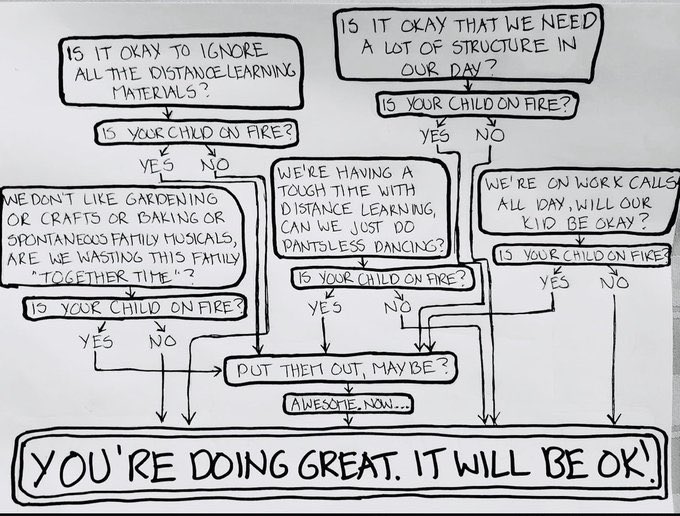 IS IT OKAY TO IGNORE
ALL THE DISTANCE LEARNING
MATERIALS?
IS YOUR CHILD ON FIRE?
YES NO
IS IT OKAY THAT WE NEED
A LOT OF STRUCTURE IN
OUR DAY?
IS YOUR CHILD ON FIRE?
YES NO
WE DON'T LIKE GARDENING
OR CRAFTS OR BAKING OR
SPONTANEOUS FAMILY MUSICALS,
ARE WE WASTING THIS FAMILY
"TOGETHER TIME"?
IS YOUR CHILD ON FIRE?
YES NO
WE'RE HAVING A
TOUGH TIME WITH
DISTANCE LEARNING,
CAN WE JUST DO
PANTSLESS DANCING?
IS YOUR CHILD ON FIRE?
YES NO
WE'RE ON WORK CALLS
ALL DAY, WILL OUR
KID BE OKAY?
IS YOUR CHILD ON FIRE?
YES NO
PUT THEM OUT, MAYBE?
AWESOME. NOW...
YOU'RE DOING GREAT. IT WILL BE OK!